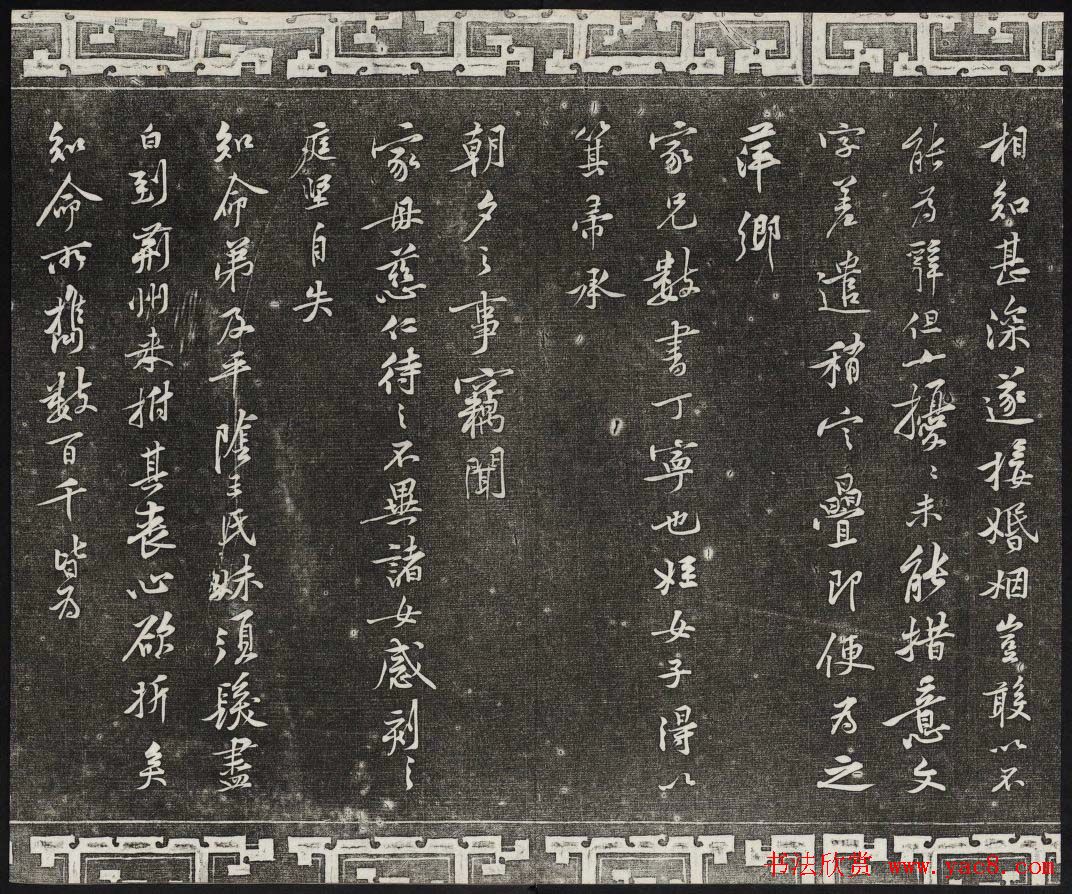 相知甚深遂接婚姻豈敢以不
能为辭但擾〻未能措意文
字差遣稍定疊即便为之
萍鄉
家兄數書丁寧也姪女子得以
箕帚承
朝夕之事竊聞
家母慈仁待之不異諸女感刻〻
庭堅自失
知命弟及平陰王氏妹須髮盡
白到荆州来拊其喪心欲折矣
知命所攜數百千皆为
书法欣赏 www.yac8.com